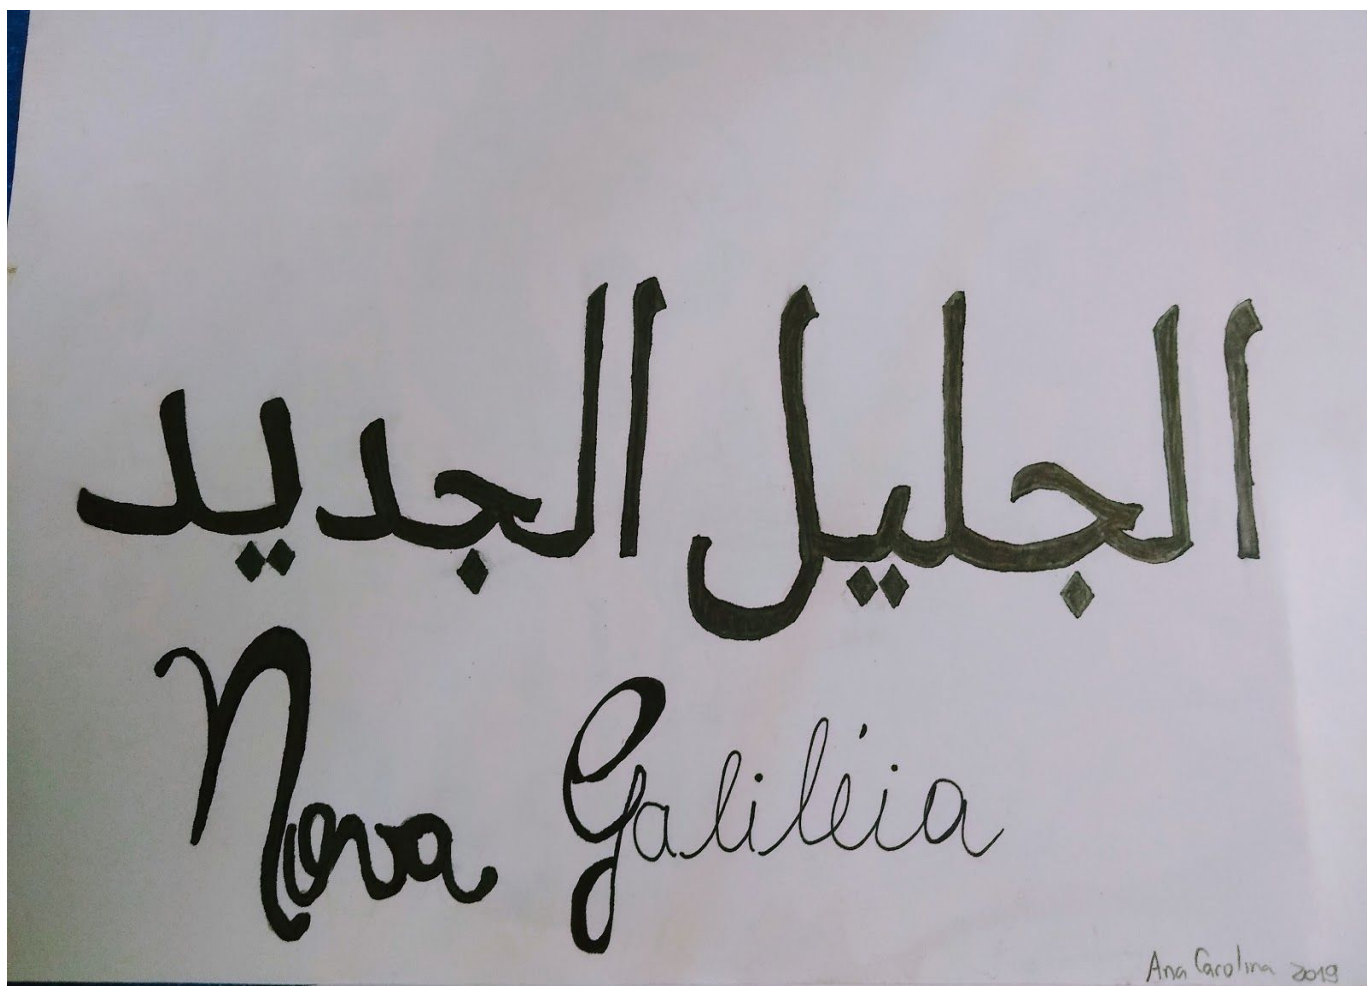 الجليل الجديد
Nova Galiléia
Ana Carolina 2019